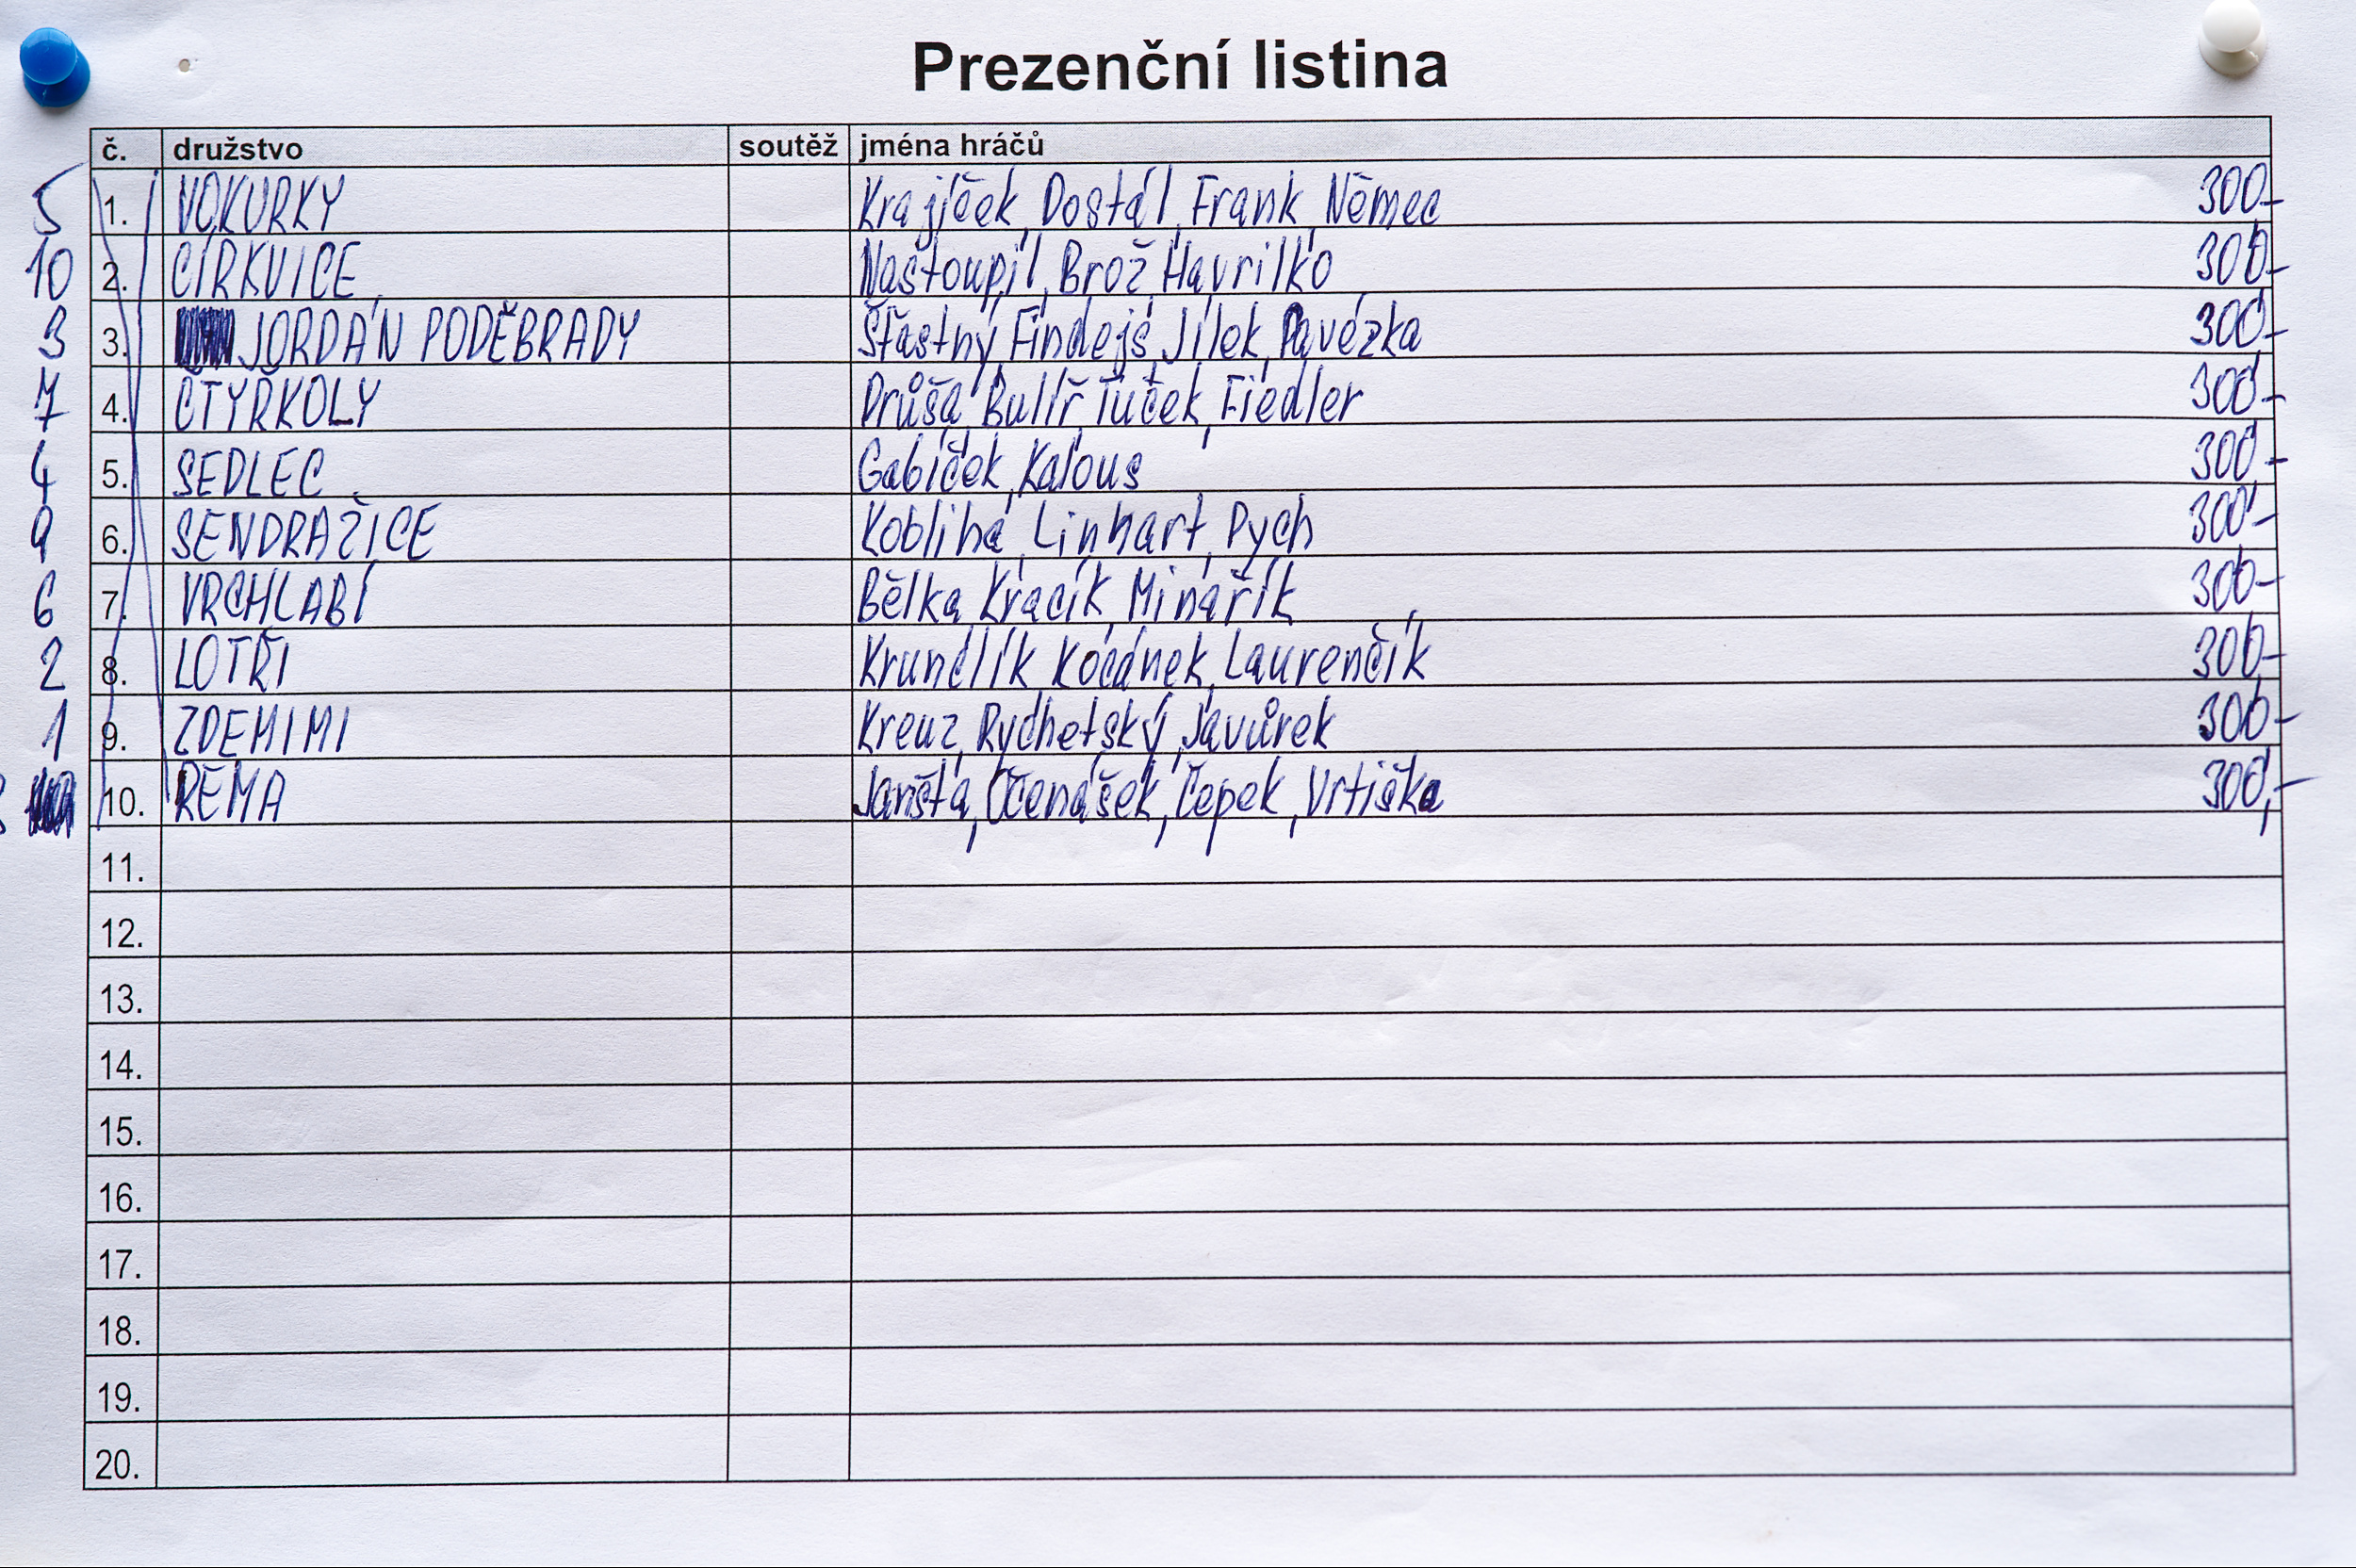 Prezenční listina
č. družstvo soutěž jména hráčů
5 1. VOKURKY Krajíček, Dostál, Frank, Němec 300,-
10 2. CÍRKVICE Nastoupil, Brož, Havrilko 300,-
3 3. JORDÁN PODĚBRADY Šťastný, Findejs, Jílek, Pavézka 300,-
7 4. ČTYŘKOLY Průša, Bulíř, Tuček, Fiedler 300,-
4 5. SEDLEC Gabíček, Kalous 300,-
9 6. SENDRAŽICE Kobliha, Linhart, Pych 300,-
6 7. VRCHLABÍ Bělka, Kracík, Minařík 300,-
2 8. LOTŘI Krundlík, Kocánek, Laurenčík 300,-
1 9. ZDEMIMI Kreuz, Rychetský, Javůrek 300,-
10. REMA Janšta, Očenášek, Čepek, Vrtiška 300,-
11.
12.
13.
14.
15.
16.
17.
18.
19.
20.